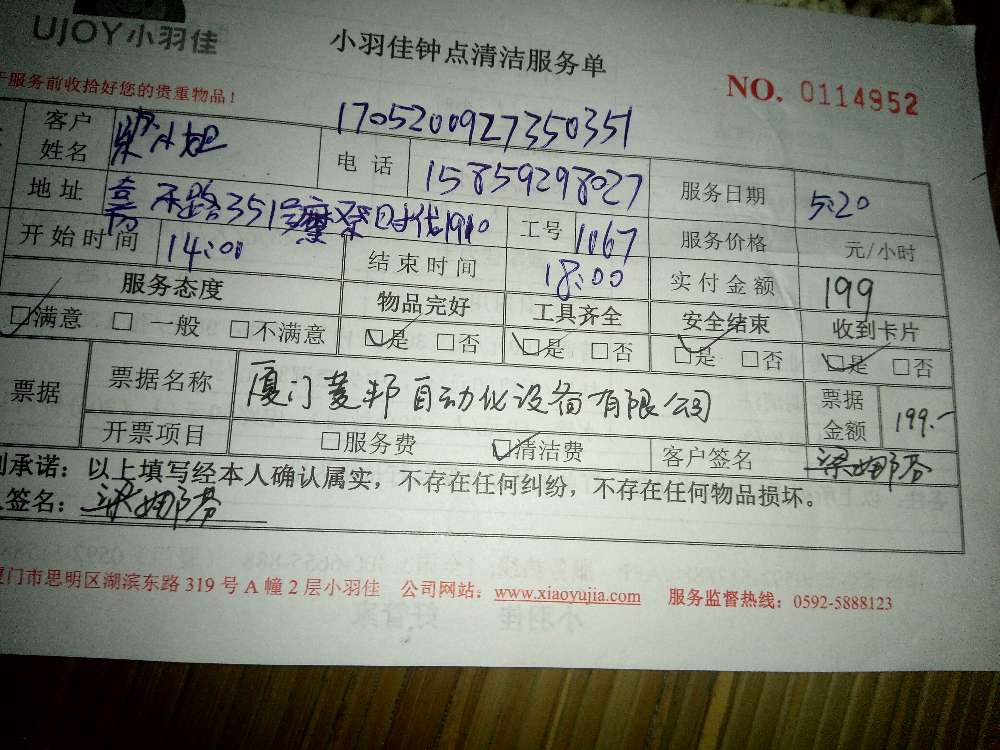 UJOY小羽佳
小羽佳钟点清洁服务单
NO. 0114952
于服务前收拾好您的贵重物品！
1705200927350351
客户姓名 梁小姐 电话 15859298027 服务日期 5.20
地址 嘉禾路351号摩登时代1910 工号 1067 服务价格 元/小时
开始时间 14:00 结束时间 18:00 实付金额 199
服务态度 物品完好 工具齐全 安全结束 收到卡片
□满意 □一般 □不满意 □是 □否 □是 □否 □是 □否 □是 □否
票据 票据名称 厦门菱邦自动化设备有限公司 票据金额 199.-
开票项目 □服务费 □清洁费 客户签名 梁娜芬
承诺：以上填写经本人确认属实，不存在任何纠纷，不存在任何物品损坏。
签名：梁娜芬
厦门市思明区湖滨东路 319 号 A 幢 2 层小羽佳 公司网站：www.xiaoyujia.com 服务监督热线：0592-5888123